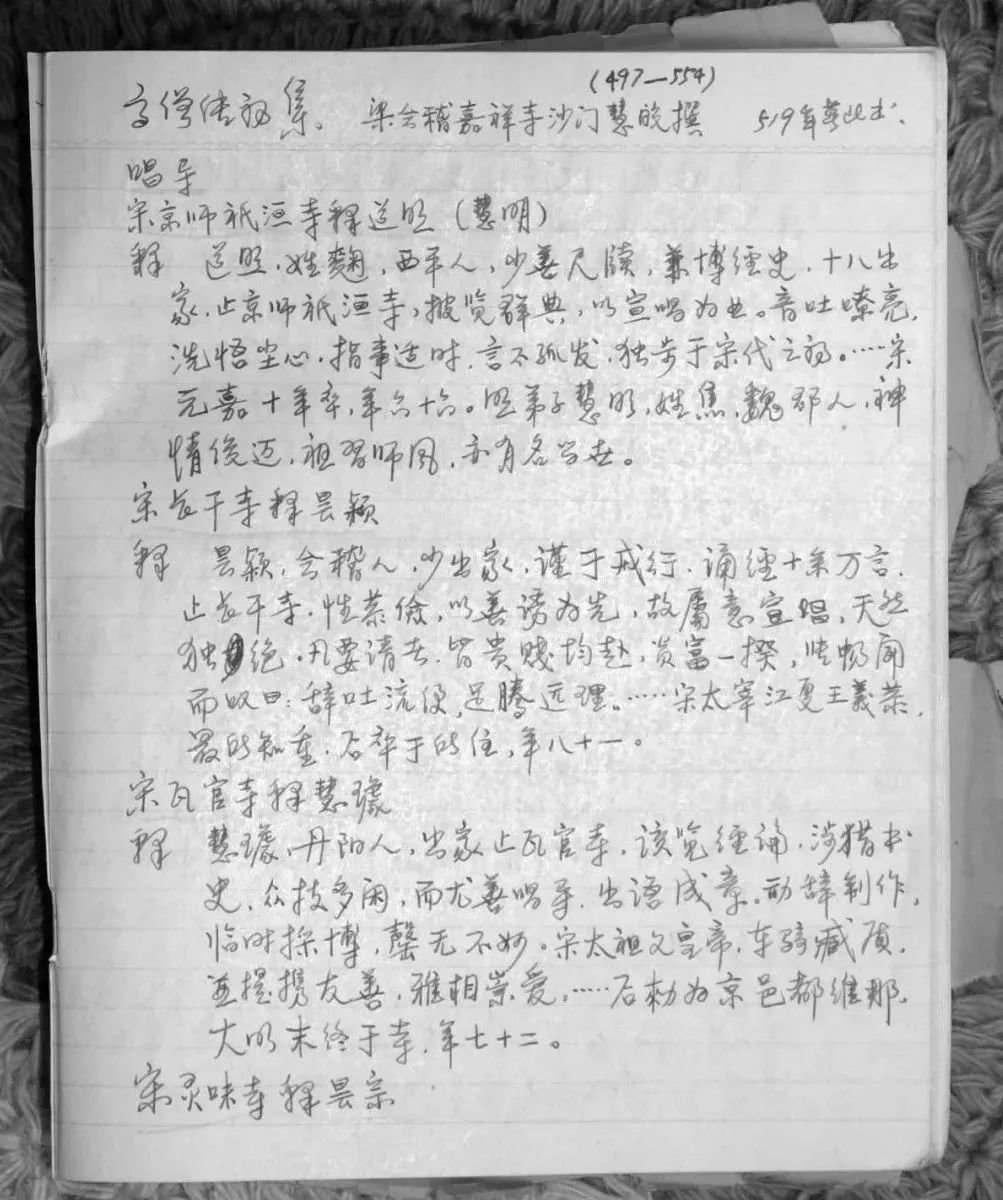 (497—554)
高僧传初集。 梁会稽嘉祥寺沙门慧皎撰 519年著此书.
唱导
宋京师祇洹寺释道照(慧明)
释 道照,姓麴,西平人,少善尺牍,兼博经史,十八出
家,止京师祇洹寺,披览群典,以宣唱为业。音吐嘹亮,
洗悟尘心,指事适时,言不孤发,独步于宋代之初。……宋
元嘉十年卒,年六十六。照弟子慧明,姓焦,魏郡人,神
情俊迈,祖习师风,亦有名当世。
宋长干寺释昙颖
释 昙颖,会稽人,少出家,谨于戒行,诵经十余万言,
止长干寺,性恭俭,以善诱为先,故属意宣唱,天然
独绝,凡要请者,皆贵贱均赴,贫富一揆,张畅闻
而叹曰:辞吐流便,足腾远理。……宋太宰江夏王義恭,
最所知重,后卒于所住,年八十一。
宋瓦官寺释慧璩
释 慧璩,丹阳人,出家止瓦官寺,该览经论,涉猎书
史,众技多闲,而尤善唱导,出语成章,动辞制作,
临时採博,罄无不妙。宋太祖文皇帝,车骑臧质,
並提携友善,雅相崇爱,……后勅为京邑都维那,
大明末终于寺,年七十二。
宋灵味寺释昙宗